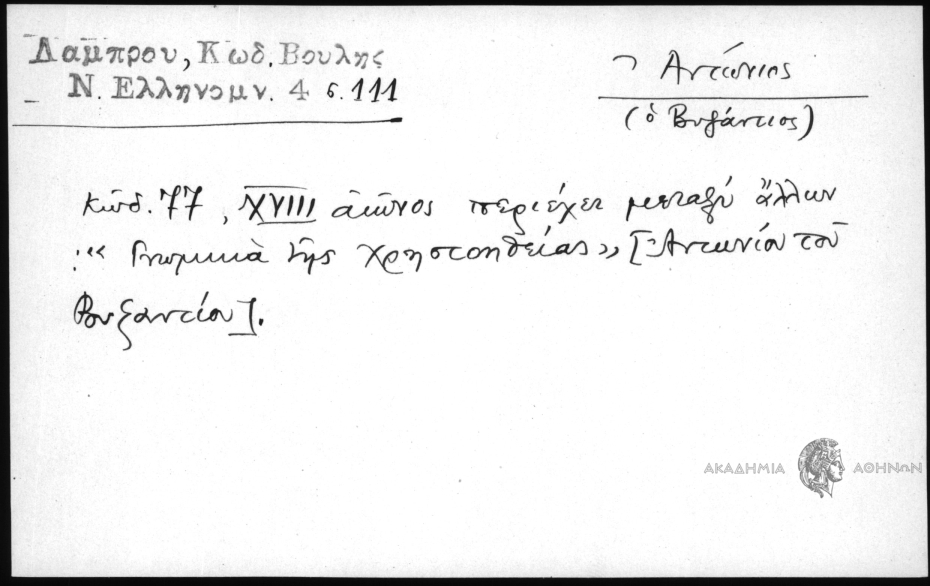 Λαμπρου, Κωδ. Βουλης
Ν. Ελληνομν. 4 σ. 111
Ἀντώνιος
(ὁ Βυζάντιος)
Κώδ. 77, XVIII αἰῶνος περιέχει μεταξὺ ἄλλων
: «Γνωμικὰ τῆς χρηστοηθείας» [Ἀντωνίου τοῦ
Βυζαντίου].
ΑΚΑΔΗΜΙΑ ΑΘΗΝΩΝ